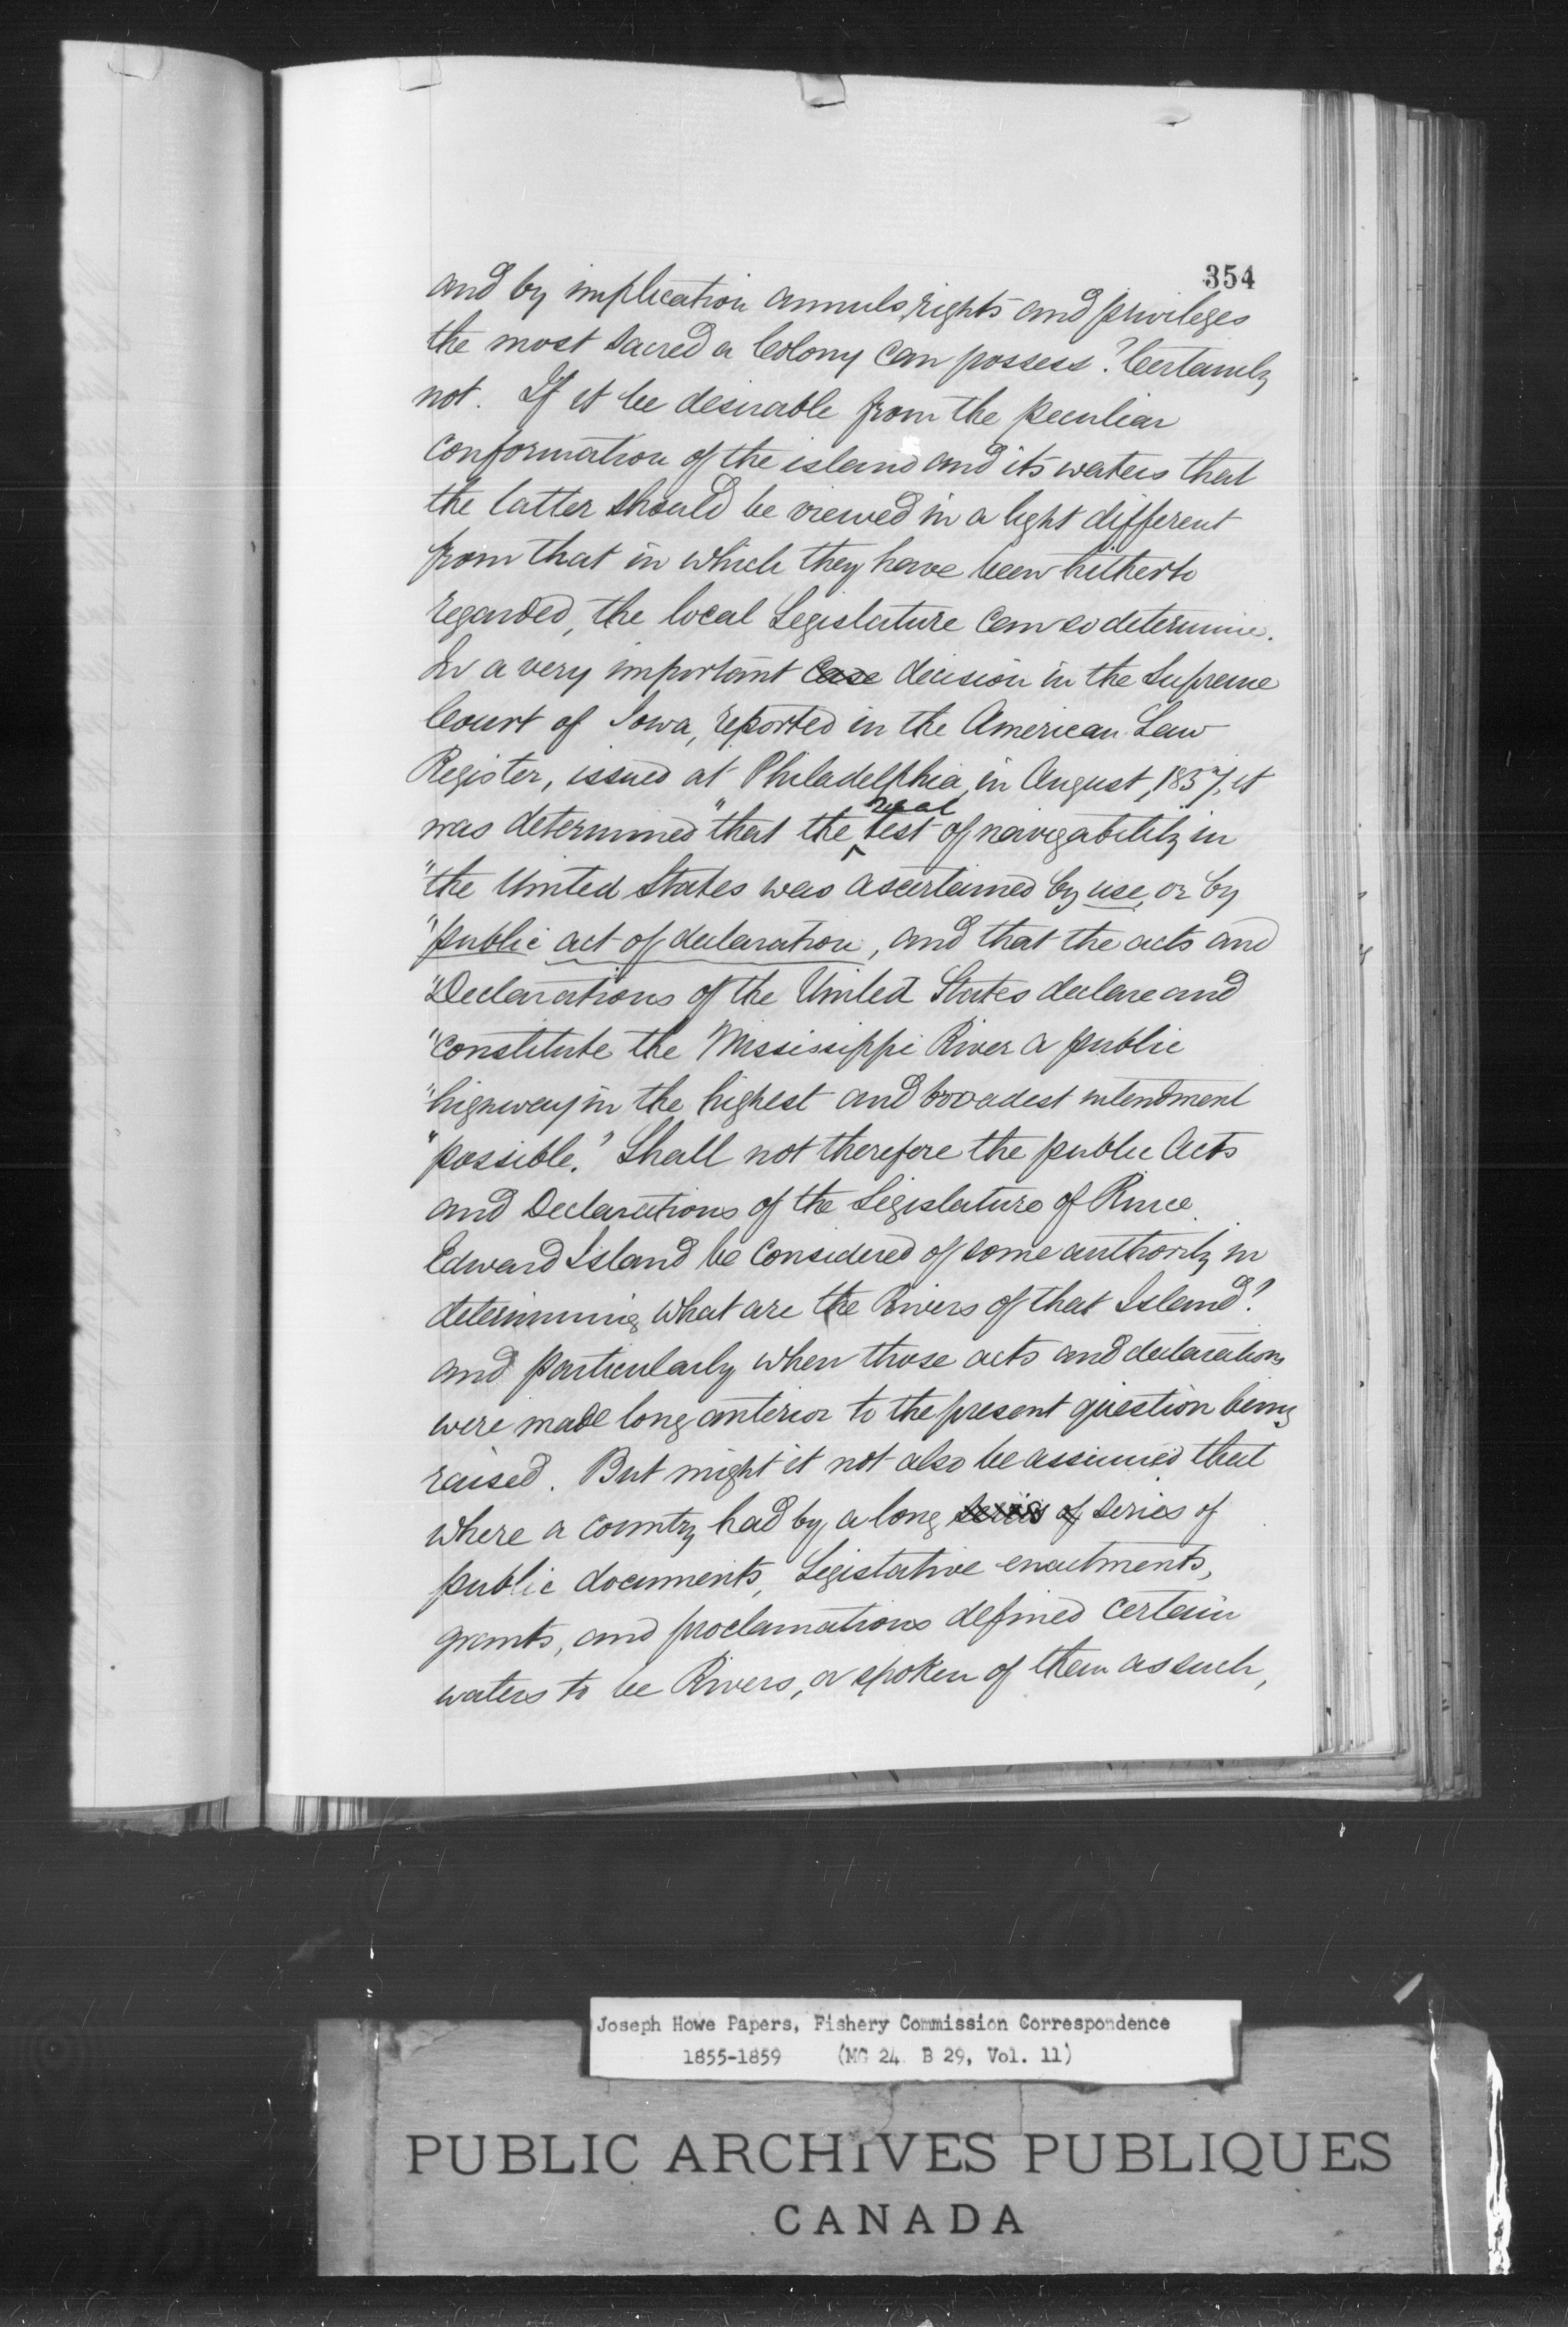 354
and by implication annuls rights and privileges
the most sacred a Colony can possess? Certainly
not. If it be desirable from the peculiar
conformation of the island and its waters that
the latter should be viewed in a light different
from that in which they have been hitherto
regarded, the local Legislature can so determine.
In a very important case decision in the Supreme
Court of Iowa, reported in the American Law
Register, issued at Philadelphia, in August, 1857, it
was determined "that the real test of navigability in
"the United States was ascertained by use, or by
"public act of declaration, and that the acts and
"Declarations of the United States declare and
"constitute the Mississippi River a public
"highway in the highest and broadest intendment
"possible." Shall not therefore the public Acts
and Declarations of the Legislature of Prince
Edward Island be considered of some authority in
determining what are the Rivers of that Island?
and particularly when those acts and declarations
were made long anterior to the present question being
raised. But might it not also be assumed that
where a country had by a long series of series of
public documents, Legislative enactments,
grants, and proclamations defined certain
waters to be Rivers, or spoken of them as such,
Joseph Howe Papers, Fishery Commission Correspondence
1855-1859 (MG 24 B 29, Vol. 11)
PUBLIC ARCHIVES PUBLIQUES
CANADA